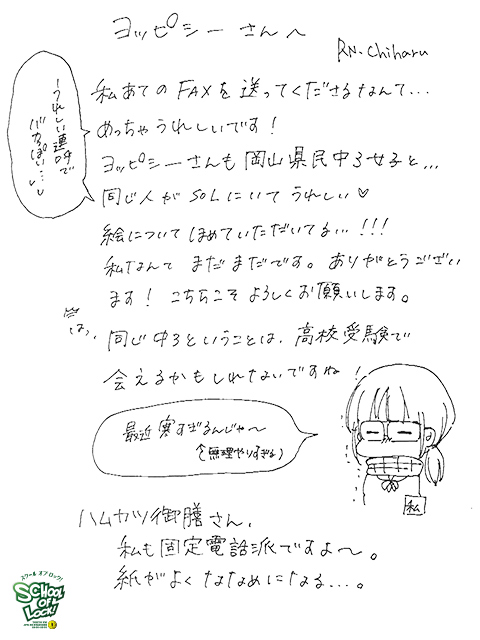 ヨッピシーさんへ
RN.Chiharu
私あてのFAXを送ってくださるなんて…
めっちゃうれしいです!
うれしい連呼で
バカっぽい…
ヨッピシーさんも岡山県民中3女子と…
同じ人がSOLにいてうれしい♡
絵についてほめていただいてる…!!!
私なんてまだまだです。ありがとうござい
ます! こちらこそよろしくお願いします。
同じ中3ということは、高校受験で
会えるかもしれないですね!
最近寒すぎるんじゃ〜
(無理やりすぎる)
私
ハムカツ御膳さん、
私も固定電話派ですよ〜。
紙がよくななめになる…。
スクール オブ ロック!
SCHOOL
OF
LOCK!